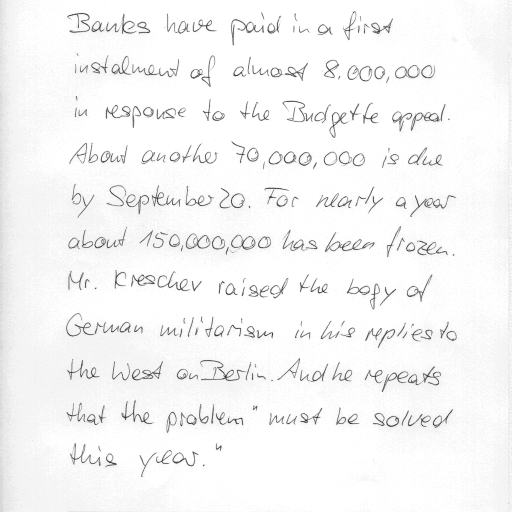 Banks have paid in a first
instalment of almost 8,000,000
in response to the Budgette appeal.
About another 70,000,000 is due
by September 20. For nearly a year
about 150,000,000 has been frozen.
Mr. Kreschev raised the bogy of
German militarism in his replies to
the West on Berlin. And he repeats
that the problem "must be solved
this year."